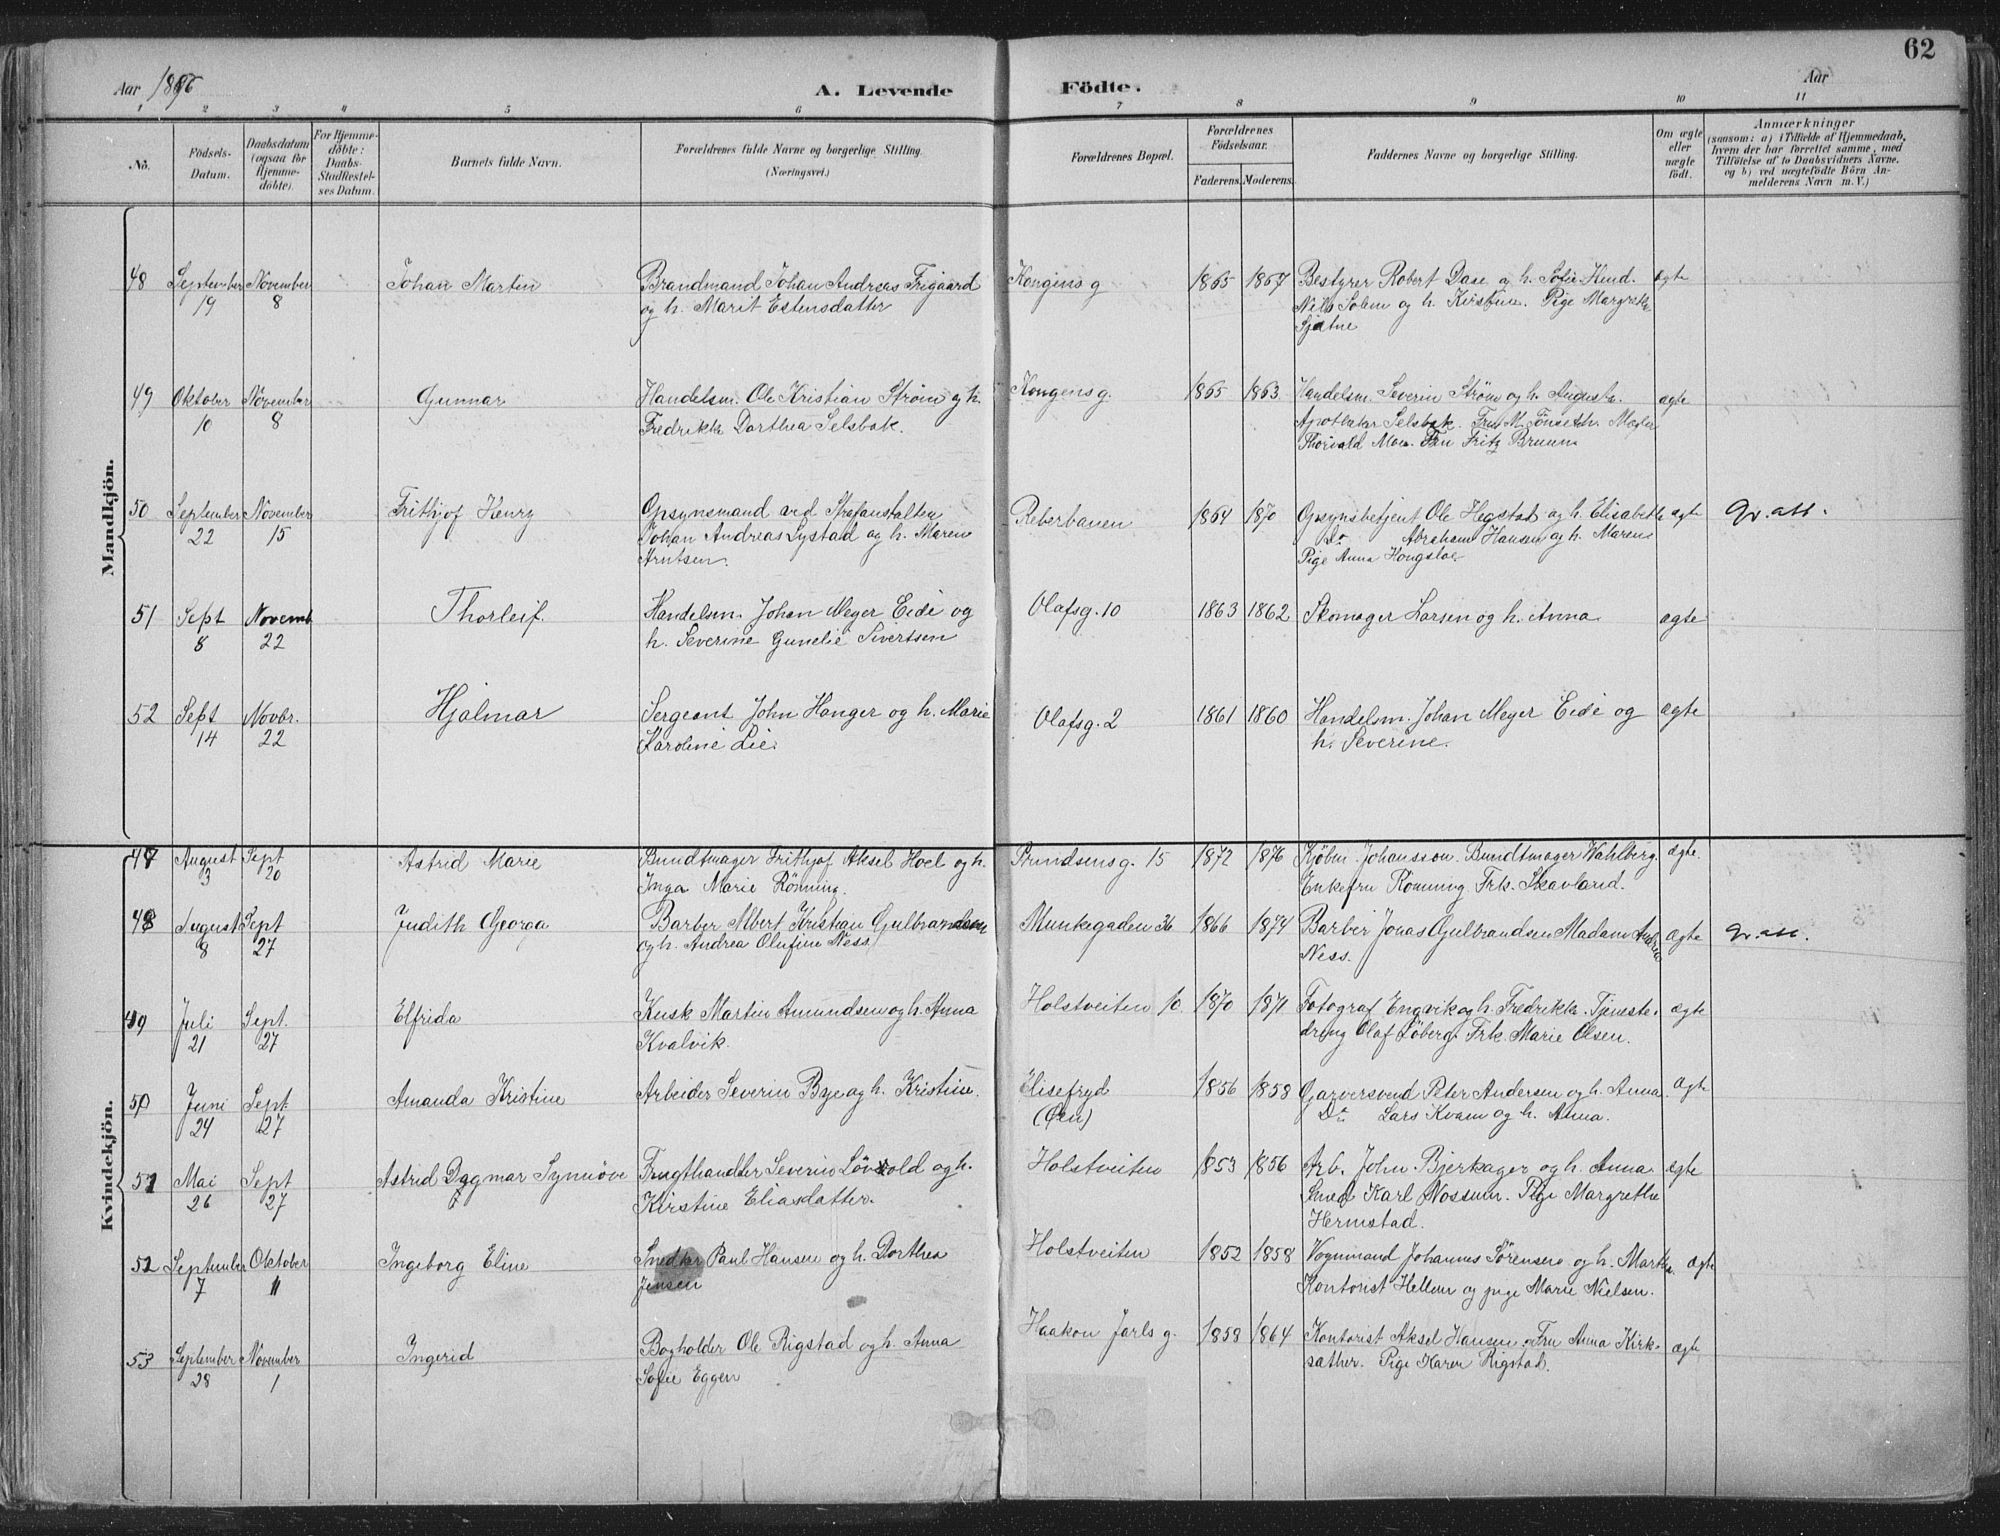 62
Aar 1896
A. Levende Födte.
Aar
1 2 3 4 5 6 7 8 9 10 11
No.
Födsels-Datum.
Daabsdatum (ogsaa for Hjemme-döbte).
For Hjemme-döbte: Daabs-Stadfæstel-ses Datum.
Barnets fulde Navn.
Forældrenes fulde Navne og borgerlige Stilling. (Næringsvei.)
Forældrenes Bopæl.
Forældrenes Födselsaar.
Faderens. Moderens.
Faddernes Navne og borgerlige Stilling.
Om ægte eller uægte födt.
Anmærkninger (saasom: a) i Tilfælde af Hjemmedaab, hvem der har forrettet samme, med Tilföielse af to Daabsvidners Navne. og b) ved uægtefödte Börn An-melderens Navn m. V.)
Mandkjön.
48 September 19 November 8 Johan Martin Brandmand Johan Andreas Trigaard Kongens g 1865 1867 Bestyrer Robert Dase og h. Sofie Hind. ægte
og h. Marit Estensdatter Nils Solem og h. Kirstine. Pige Margrethe
Sjetne
49 Oktober 10 November 8 Gunnar Handelsm. Ole Kristian Strøm og h. Kongens g. 1865 1863 Handelsm. Severin Strøm og h. Augusta. ægte
Fredrikke Dorthea Selsbak. Apotheker Selsbak. Fru M. Tönseth. Mægler
Thorvald Moe. Fru Fritz Bruun
50 September 22 November 15 Frithjof Henry Opsynsmand ved Strafanstalten Reberbanen 1864 1870 Opsynsbetjent Ole Hegstad og h. Elisabeth ægte av. att.
Johan Andreas Lystad og h. Maren Do Abraham Hansen og h. Maren
Arntsen. Pige Anna Hongsloe.
51 Sept 8 Novemb 22 Thorleif. Handelsm. Johan Meyer Eide og Olafsg. 10 1863 1862 Skomager Larsen og h. Anna ægte
h. Severine Gunelie Sivertsen
52 Sept 14 Novbr. 22 Hjalmar Sergeant John Hanger og h. Marie Olafsg. 2 1861 1860 Handelsm. Johan Meyer Eide og ægte
Karoline Lie. h. Severine.
Kvindekjön.
47 August 3 Sept 20 Astrid Marie Bundtmager Frithjof Aksel Hoel og h. Prindsens g. 15 1872 1876 Kjøbm. Johansson. Bundtmager Wahlberg. ægte.
Inga Marie Rönning. Enkefru Rönning. Frk. Skavland.
48 August 8 Sept 27 Judith Georga Barber Albert Kristian Gulbrandsen Munkegaden 36 1866 1874 Barber Jonas Gulbrandsen Madam Andrea ægte av. att.
og h. Andrea Olufine Ness Ness.
49 Juli 21 Sept. 27 Elfrida Kusk Martin Amundsen og h. Anna Holstveiten 10 1870 1871 Fotograf Engvik og h. Fredrikke. Tjeneste- ægte
Kvalvik. dreng Olaf Löberg. Frk. Marie Olsen.
50 Juni 24 Sept. 27 Amanda Kristine Arbeider Severin Bye og h. Kristine. Elisefryd 1856 1858 Garversvend Peter Andersen og h. Anna. ægte
(Øen) Do Lars Kvam og h. Anna.
51 Mai 26 Sept 27 Astrid Dagmar Synnöve Frugthandler Severin Lövold og h. Holstveiten 1853 1856 Arb. John Bjerkager og h. Anna ægte
Kirstine Eliasdatter. Smed Karl Nossum. Pige Margrethe
Hermstad.
52 September 7 Oktober 11 Ingeborg Eline Snedker Paul Hansen og h. Dorthea Holstveiten 1852 1858 Vognmand Johannes Sörensen og h. Martha. ægte
Jensen Kontorist Hellem og pige Marie Nielsen.
53 September 28 November 1 Ingerid Bogholder Ole Rigstad og h. Anna Haakon Jarls g. 1858 1864 Kontorist Aksel Hansen. Fru Anna Kirk- ægte
Sofie Eggen sæther. Pige Karen Rigstad.